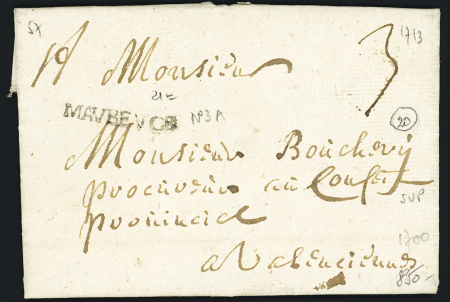 SX
1713
A Monsieur
3
21=
MAVBEVGE N°3A
20
Monsieur Bouchery
procureur au Conseil
SUP
provincial
1700
a Valenciennes
850-